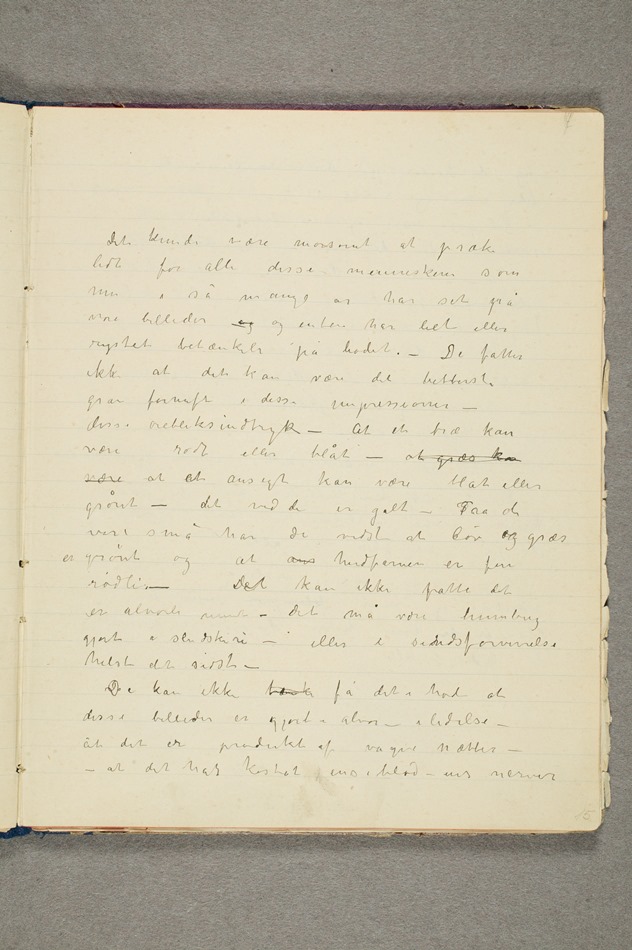 Det kunde være morsomt at præke
lidt for alle disse menneskene som
nu i så mange år har set på
vore billeder og og enten har let eller
rystet betænkeli på hodet. – De fatter
ikke at det kan være det bitterste
gran fornuft i disse impressioner –
disse øiebliksindtryk – At et træ kan
være rødt eller blåt – at græs kan
være at et ansigt kan være blåt eller
grønt – det ved de er galt – Fra de
vare små har de vidst at løv og græs
er grønt og at ans hudfarven er fin
rødli – Det kan ikke fatte det
er alvorli ment – det må være humbug
gjort i sludskeri – eller i sindsforvirrelse
helst det sidste –
De kan ikke få det i hod at
disse billeder er gjort i alvor – i lidelse –
at det er produkt af vågne nætter –
– at det har kostet ens blod – ens nerver
15